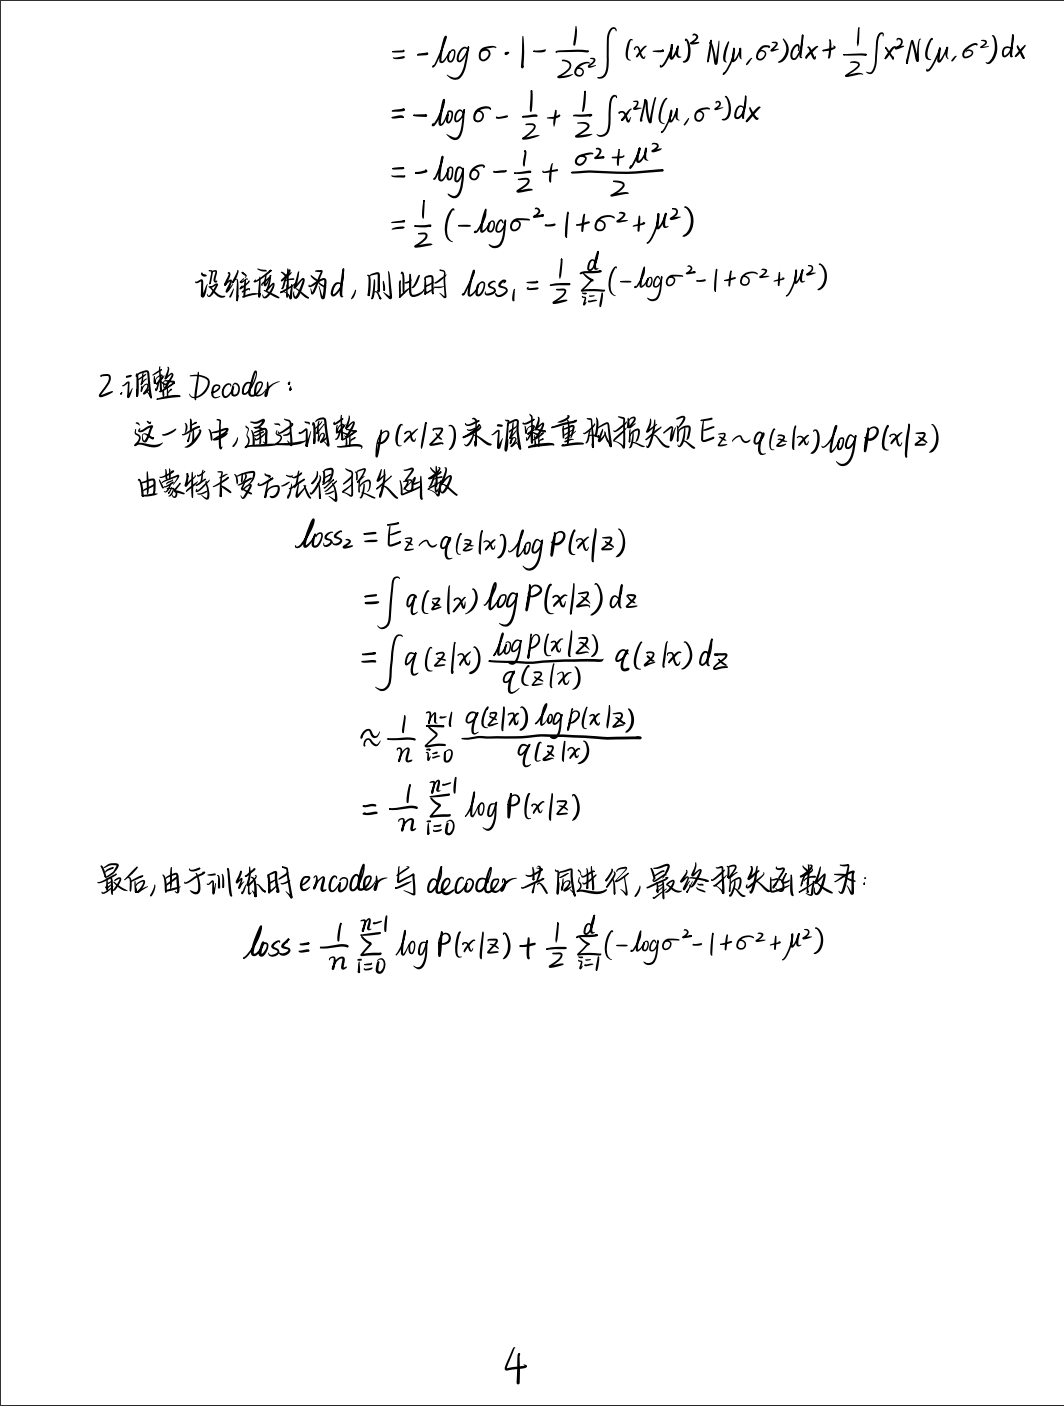 = -log σ · 1 - 1/(2σ²) ∫ (x-μ)² N(μ, σ²)dx + 1/2 ∫x²N(μ, σ²)dx
= -log σ - 1/2 + 1/2 ∫x²N(μ, σ²)dx
= -logσ - 1/2 + (σ²+μ²)/2
= 1/2 (-logσ²-1+σ²+μ²)
设维度数为d, 则此时 loss₁ = 1/2 ∑_{i=1}^{d} (-logσ²-1+σ²+μ²)
2.调整 Decoder:
这一步中, 通过调整 p(x|z) 来调整重构损失项 E_{z~q(z|x)} log P(x|z)
由蒙特卡罗方法得损失函数
loss₂ = E_{z~q(z|x)} log P(x|z)
= ∫ q(z|x) log P(x|z) dz
= ∫ q(z|x) (log P(x|z))/(q(z|x)) q(z|x) dz
≈ 1/n ∑_{i=0}^{n-1} (q(z|x) log p(x|z))/(q(z|x))
= 1/n ∑_{i=0}^{n-1} log P(x|z)
最后, 由于训练时 encoder 与 decoder 共同进行, 最终损失函数为:
loss = 1/n ∑_{i=0}^{n-1} log P(x|z) + 1/2 ∑_{i=1}^{d} (-logσ²-1+σ²+μ²)
4